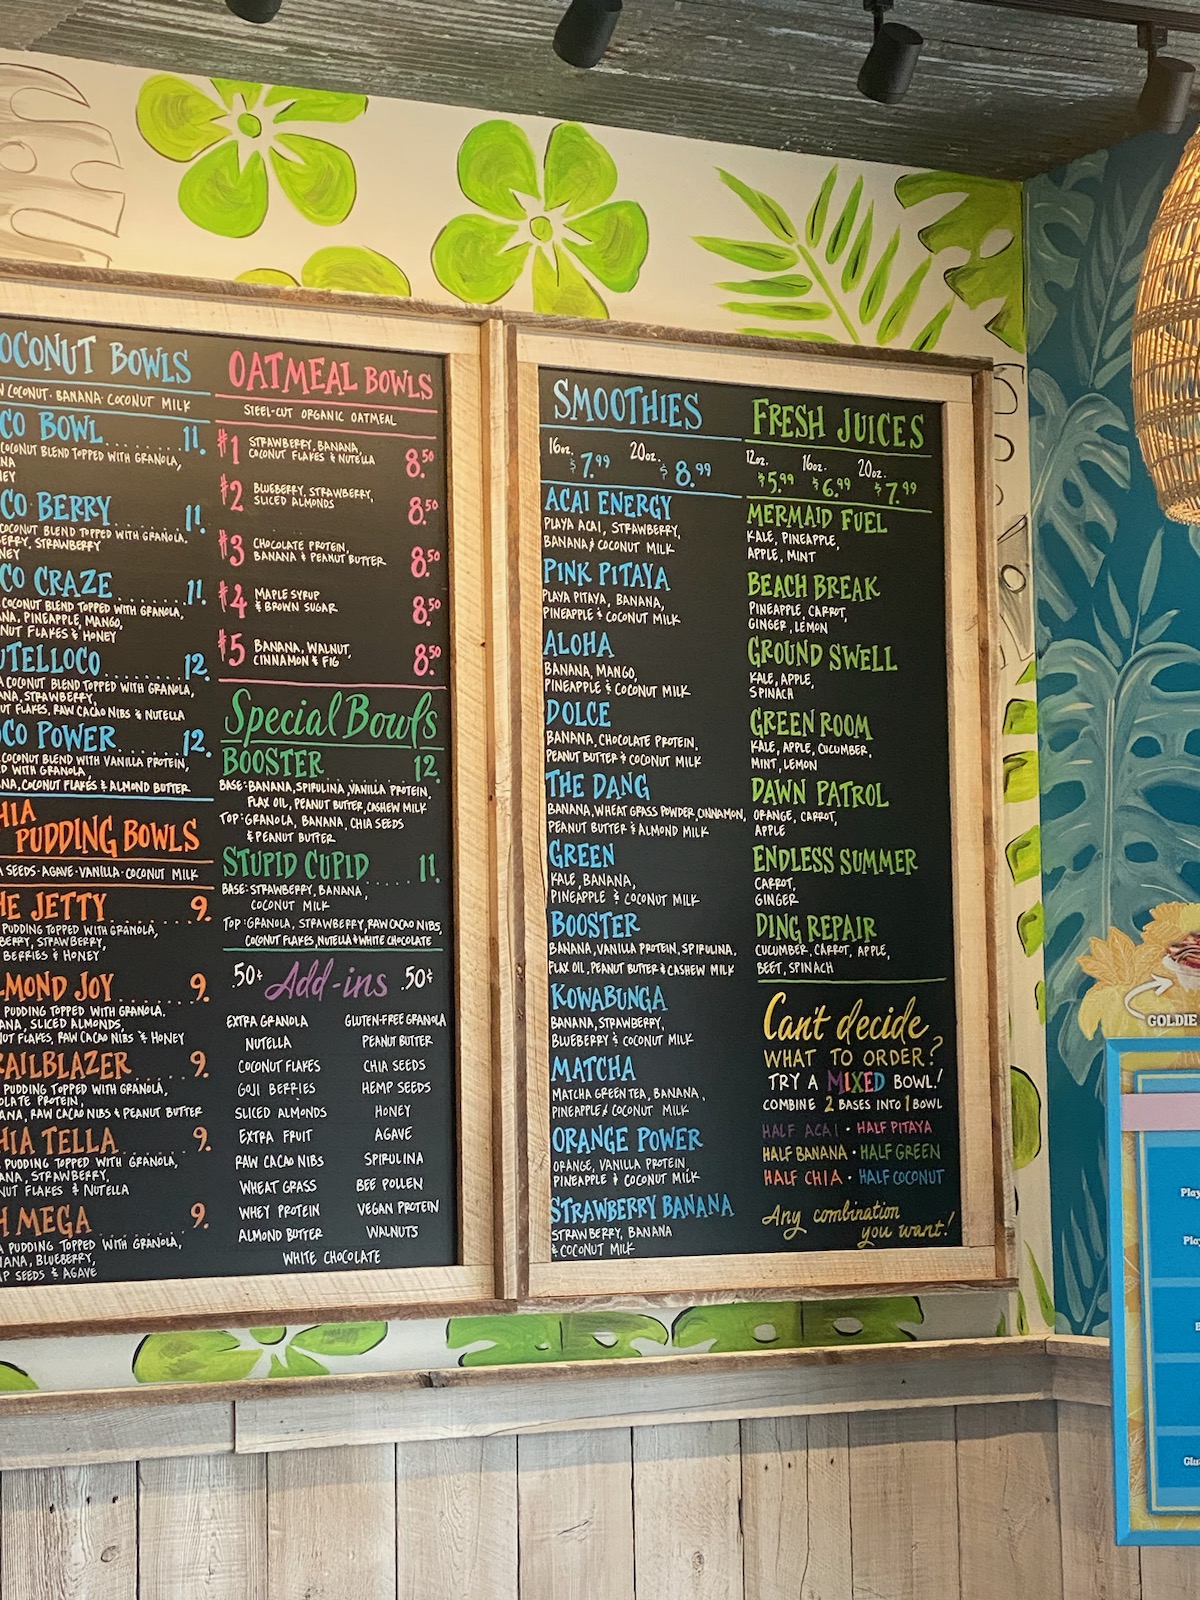 COCONUT BOWLS
COCONUT · BANANA · COCONUT MILK
BOWL........11.
COCONUT BLEND TOPPED WITH GRANOLA,
BERRY........11.
COCONUT BLEND TOPPED WITH GRANOLA,
STRAWBERRY
CRAZE........11.
COCONUT BLEND TOPPED WITH GRANOLA,
PINEAPPLE, MANGO,
FLAKES & HONEY
12.
COCONUT BLEND TOPPED WITH GRANOLA,
STRAWBERRY,
FLAKES, RAW CACAO NIBS & NUTELLA
POWER........12.
COCONUT BLEND WITH VANILLA PROTEIN,
WITH GRANOLA,
COCONUT FLAKES & ALMOND BUTTER
PUDDING BOWLS
SEEDS · AGAVE · VANILLA · COCONUT MILK
JETTY........9.
PUDDING TOPPED WITH GRANOLA,
STRAWBERRY,
BERRIES & HONEY
JOY........9.
PUDDING TOPPED WITH GRANOLA,
SLICED ALMONDS,
FLAKES, RAW CACAO NIBS & HONEY
9.
PUDDING TOPPED WITH GRANOLA,
PROTEIN,
RAW CACAO NIBS & PEANUT BUTTER
TELLA........9.
PUDDING TOPPED WITH GRANOLA,
STRAWBERRY,
FLAKES & NUTELLA
MEGA........9.
PUDDING TOPPED WITH GRANOLA,
BLUEBERRY,
SEEDS & AGAVE
OATMEAL BOWLS
STEEL-CUT ORGANIC OATMEAL
#1 STRAWBERRY, BANANA, COCONUT FLAKES & NUTELLA 8.50
#2 BLUEBERRY, STRAWBERRY, SLICED ALMONDS 8.50
#3 CHOCOLATE PROTEIN, BANANA & PEANUT BUTTER 8.50
#4 MAPLE SYRUP & BROWN SUGAR 8.50
#5 BANANA, WALNUT, CINNAMON & FIG 8.50
Special Bowls
BOOSTER........12.
BASE: BANANA, SPIRULINA, VANILLA PROTEIN,
FLAX OIL, PEANUT BUTTER, CASHEW MILK
TOP: GRANOLA, BANANA, CHIA SEEDS
& PEANUT BUTTER
STUPID CUPID........11.
BASE: STRAWBERRY, BANANA,
COCONUT MILK
TOP: GRANOLA, STRAWBERRY, RAW CACAO NIBS,
COCONUT FLAKES, NUTELLA & WHITE CHOCOLATE
.50¢ Add-ins .50¢
EXTRA GRANOLA GLUTEN-FREE GRANOLA
NUTELLA PEANUT BUTTER
COCONUT FLAKES CHIA SEEDS
GOJI BERRIES HEMP SEEDS
SLICED ALMONDS HONEY
EXTRA FRUIT AGAVE
RAW CACAO NIBS SPIRULINA
WHEAT GRASS BEE POLLEN
WHEY PROTEIN VEGAN PROTEIN
ALMOND BUTTER WALNUTS
WHITE CHOCOLATE
SMOOTHIES
16oz. $7.99 20oz. $8.99
ACAI ENERGY
PLAYA ACAI, STRAWBERRY,
BANANA & COCONUT MILK
PINK PITAYA
PLAYA PITAYA, BANANA,
PINEAPPLE & COCONUT MILK
ALOHA
BANANA, MANGO,
PINEAPPLE & COCONUT MILK
DOLCE
BANANA, CHOCOLATE PROTEIN,
PEANUT BUTTER & COCONUT MILK
THE DANG
BANANA, WHEAT GRASS POWDER, CINNAMON,
PEANUT BUTTER & ALMOND MILK
GREEN
KALE, BANANA,
PINEAPPLE & COCONUT MILK
BOOSTER
BANANA, VANILLA PROTEIN, SPIRULINA,
FLAX OIL, PEANUT BUTTER & CASHEW MILK
KOWABUNGA
BANANA, STRAWBERRY,
BLUEBERRY & COCONUT MILK
MATCHA
MATCHA GREEN TEA, BANANA,
PINEAPPLE & COCONUT MILK
ORANGE POWER
ORANGE, VANILLA PROTEIN,
PINEAPPLE & COCONUT MILK
STRAWBERRY BANANA
STRAWBERRY, BANANA
& COCONUT MILK
FRESH JUICES
12oz. $5.99 16oz. $6.99 20oz. $7.99
MERMAID FUEL
KALE, PINEAPPLE,
APPLE, MINT
BEACH BREAK
PINEAPPLE, CARROT,
GINGER, LEMON
GROUND SWELL
KALE, APPLE,
SPINACH
GREEN ROOM
KALE, APPLE, CUCUMBER,
MINT, LEMON
DAWN PATROL
ORANGE, CARROT,
APPLE
ENDLESS SUMMER
CARROT,
GINGER
DING REPAIR
CUCUMBER, CARROT, APPLE,
BEET, SPINACH
Can't decide
WHAT TO ORDER?
TRY A MIXED BOWL!
COMBINE 2 BASES INTO 1 BOWL
HALF ACAI · HALF PITAYA
HALF BANANA · HALF GREEN
HALF CHIA · HALF COCONUT
Any combination
you want!
GOLDIE